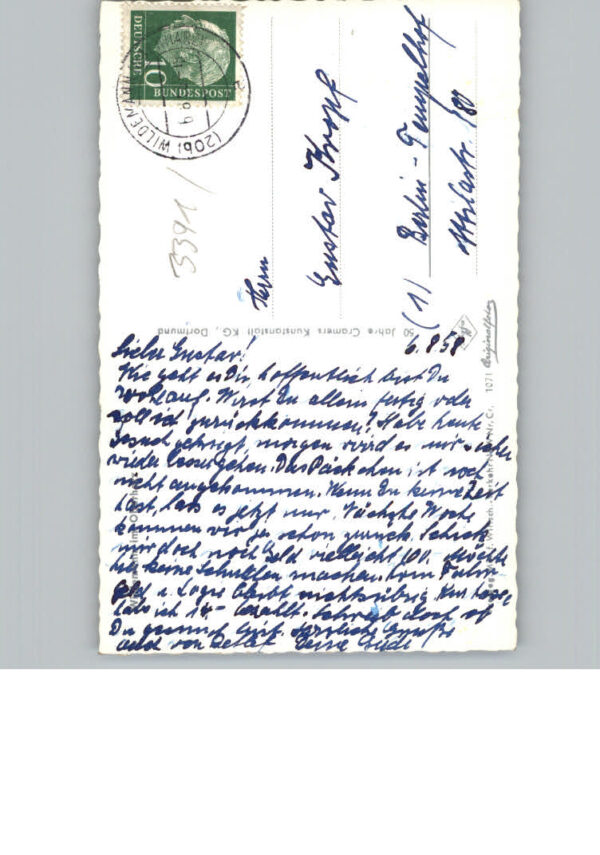 DEUTSCHE
10
BUNDESPOST
(20b) WILDEMANN
3391/
Herrn
Gustav Kropf
(1) Berlin - Tempelhof
Attilastr.
50 Jahre Cramers Kunstanstalt KG., Dortmund
Originalfoto
6.8.58
Lieber Gustav!
Wie geht es Dir, hoffentlich bist Du
wohlauf. Wirst Du allein fertig oder
soll ich zurückkommen? Habe heute
Besuch gekriegt morgen wird es mir sicher
wieder besser gehen. Das Päckchen ist noch
nicht angekommen. Wenn Du keine Zeit
hast, lass es jetzt nur. Nächste Woche
kommen wir ja schon zurück. Schick
mir doch noch Geld vielleicht 100.- möchte
hier keine Schulden machen. Vom Fahr-
geld u. Logie bleibt nichts übrig. Kurtaxe
hab ich 14.- bezahlt. Schreib doch ob
Du gesund bist. Herzliche Grüße
auch von Detlef Deine